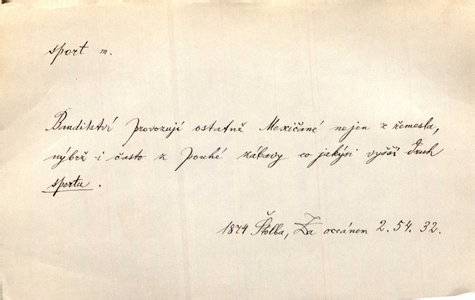 sport m.
Banditství provozují ostatně Mexičané nejen z řemesla,
nýbrž i často k pouhé zábavy co jakýsi vyšší druh
sportu.
1874 Štolba, Za oceánem 2.54.32.